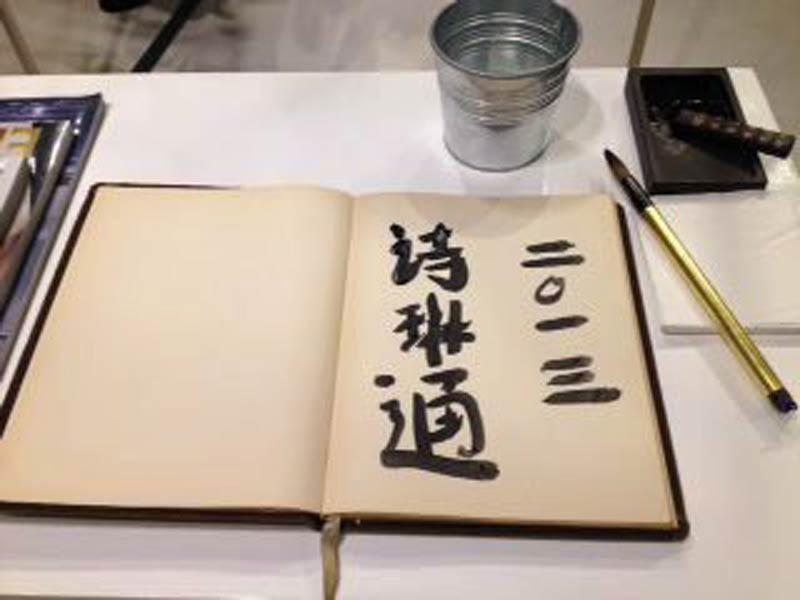 二〇一三
诗琳通